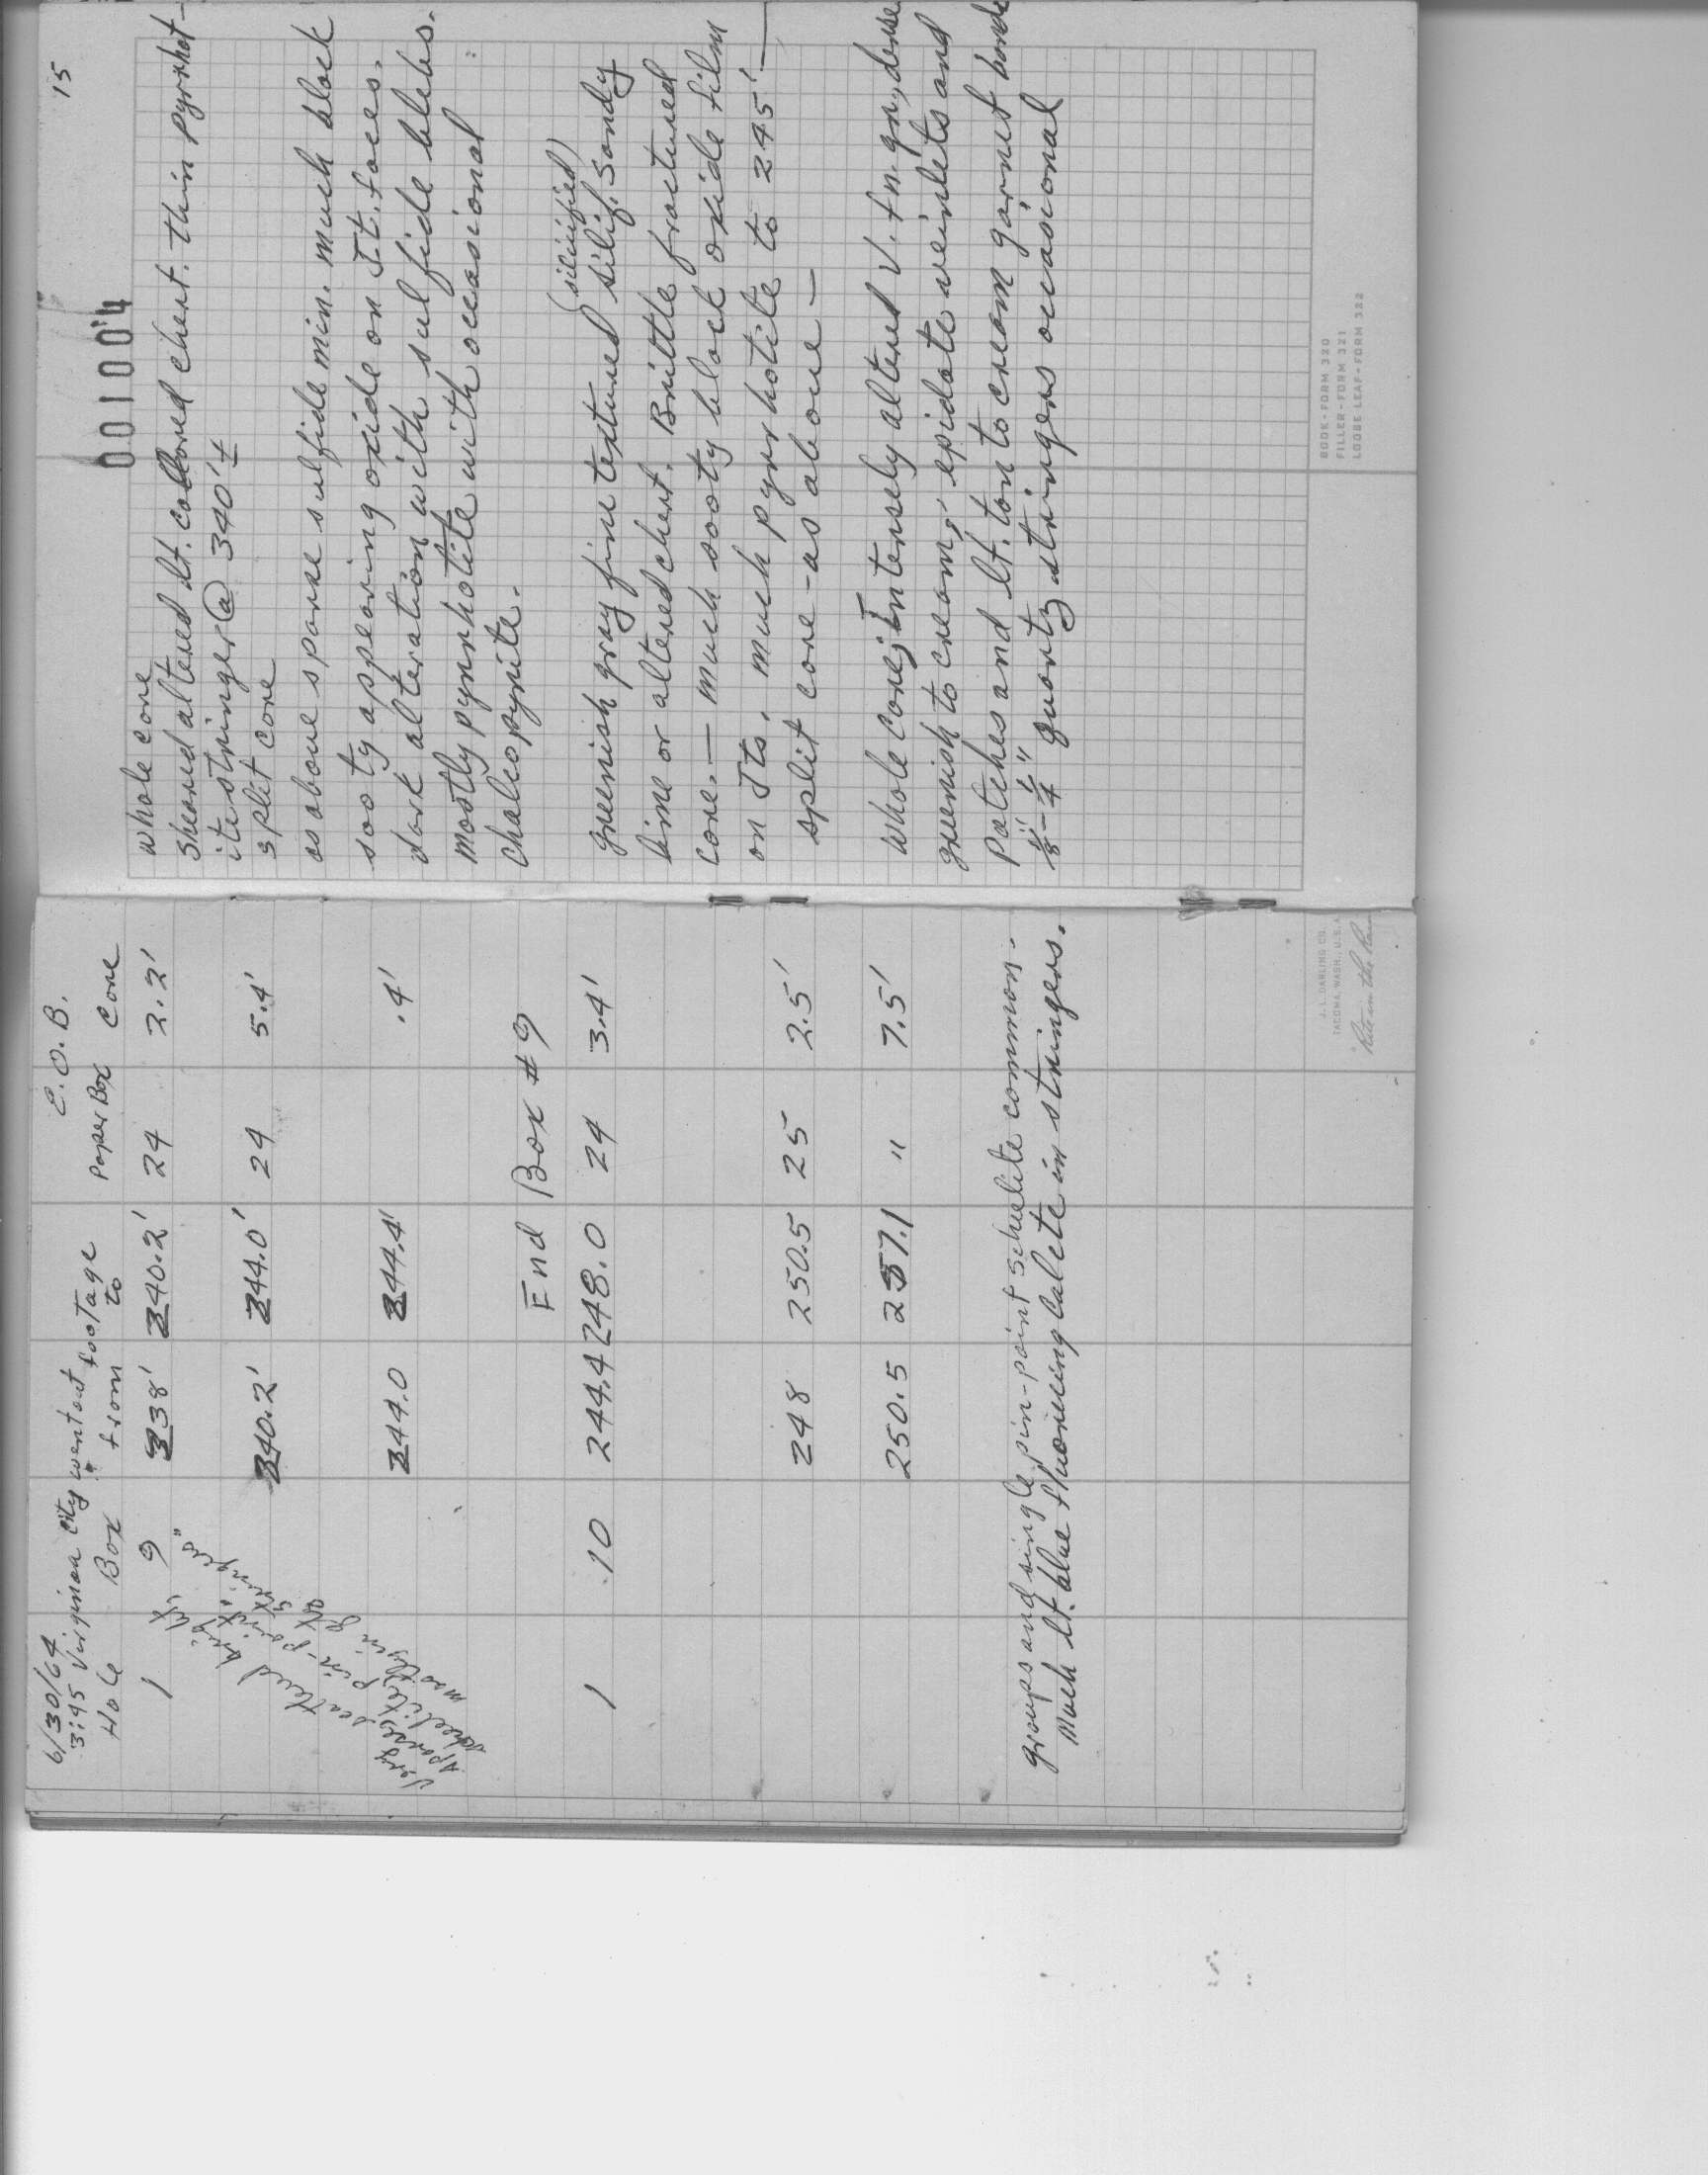 6/30/64
3:45 Virginia City went out
E.O.B.
Hole Box footage from to Paper Box Core
1 9 238' 240.2' 24 2.2'
240.2' 244.0' 24 5.4'
244.0 244.4' .4'
Very sparse, scattered
scheelite, pin-point,
mostly in qtz
stringers
End Box #9
1 10 244.4 248.0 24 3.4'
248 250.5 25 2.5'
250.5 257.1 " 7.5'
groups and single pin-point scheelite common.
Much lt. blue fluorescing calcite in stringers.
J. L. DARLING CO.
TACOMA, WASH., U.S.A.
"Rite in the Rain
15
001004
whole core
Sheared altered lt. colored chert. thin pyrrhot-
ite stringer @ 340' ±
split core
as above sparse sulfide min. much black
sooty appearing oxide on Jt. faces.
dark alteration with sulfide blebs.
mostly pyrrhotite with occasional
chalcopyrite.
(silicified)
greenish gray fine textured silif. sandy
lime or altered chert. Brittle fractured
core. — much sooty black oxide film
on Jts. much pyrrhotite to 245'.
split core - as above —
whole core; Intensely altered v. fn. gn, dense
greenish to cream, epidote veinlets and
patches and lt. tan to cream garnet bands
1/8" - 1/4" quartz stringers occasional
BOOK-FORM 320
FILLER-FORM 321
LOOSE LEAF-FORM 322